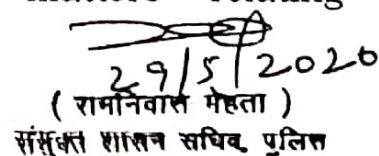 29/5/2020
( रामनिवास मेहता )
संयुक्त शासन सचिव पुलिस